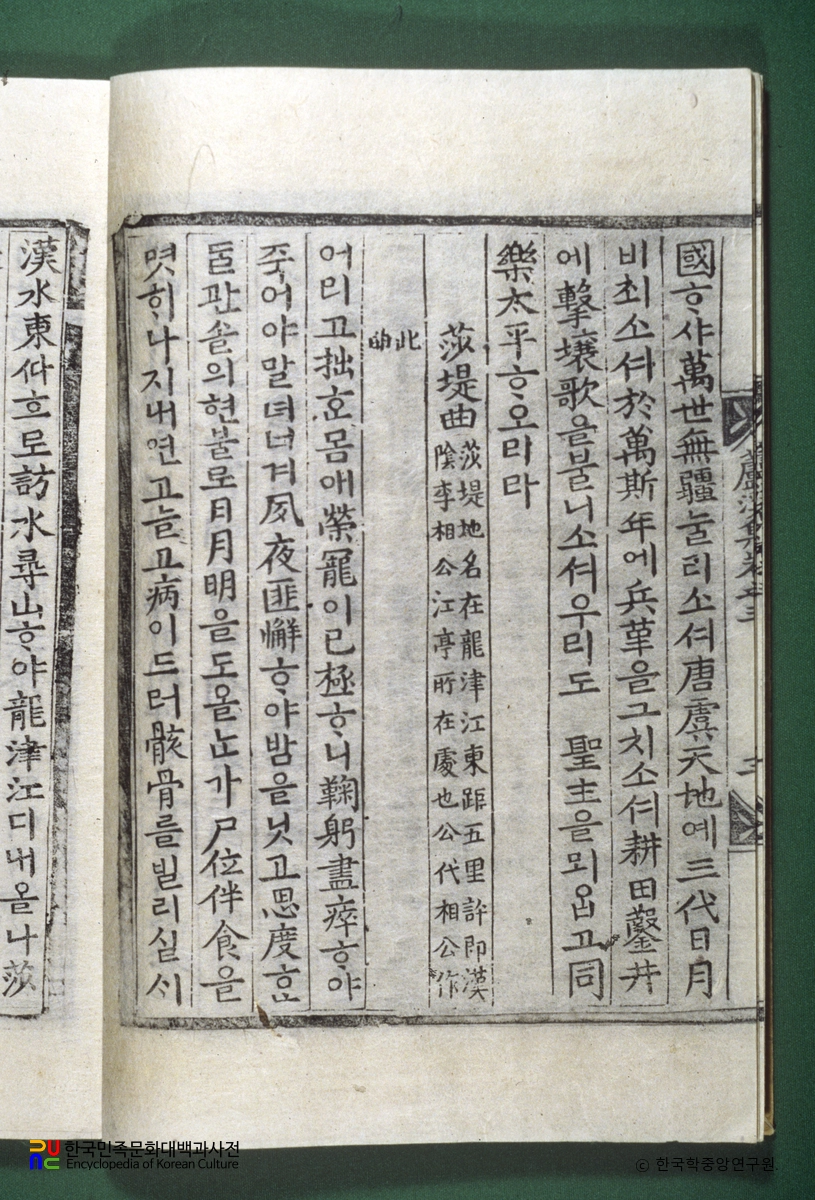 國ᄒᆞ샤萬世無疆눌리소셔唐虞天地예三代日月
비최소셔於萬斯年에兵革을그치소셔耕田鑿井
에擊壤歌을불니소셔우리도 聖主을뫼ᄋᆞᆸ고同
樂太平ᄒᆞ오리라
莎堤曲 莎堤地名在龍津江東距五里許即漢
陰李相公江亭所在處也公代相公作
此曲
어리고拙ᄒᆞᆫ몸애榮寵이已極ᄒᆞ니鞠躬盡瘁ᄒᆞ야
죽어야말녀너겨夙夜匪懈ᄒᆞ야밤을닛고思度ᄒᆞᆫ
ᄃᆞᆯ관솔의현불로日月明을도올ᄂᆞᆫ가尸位伴食을
몃ᄒᆡ나지내연고늘고病이드러骸骨를빌리실ᄉᆡ
漢水東ᄯᅡ흐로訪水尋山ᄒᆞ야龍津江디내올나莎
蘆溪集卷之三
한국민족문화대백과사전
Encyclopedia of Korean Culture
© 한국학중앙연구원